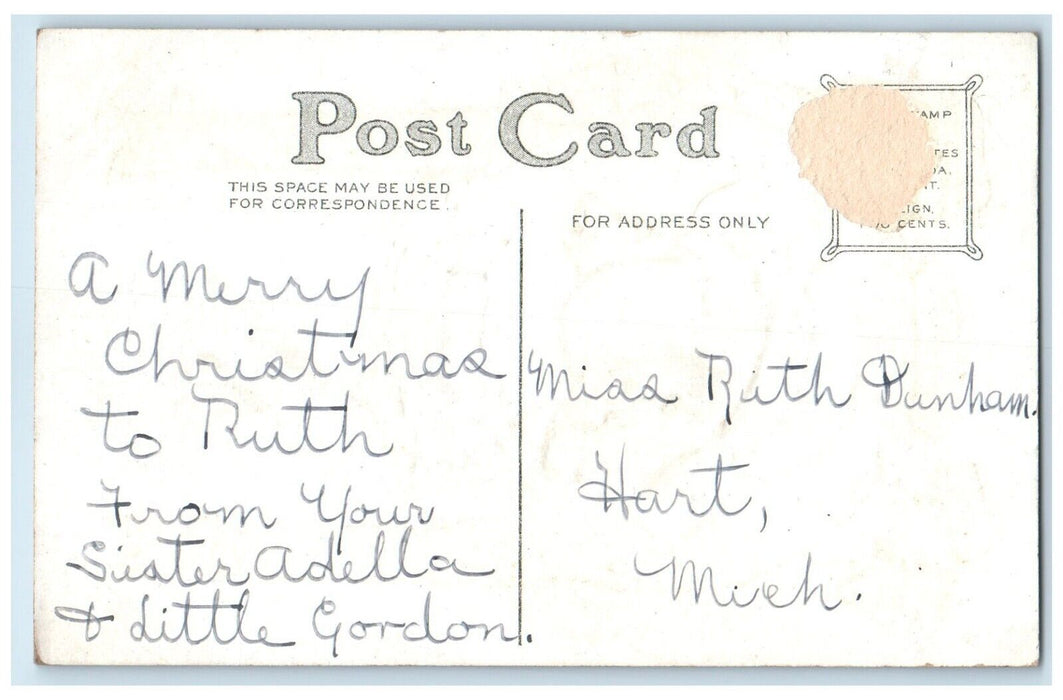 Post Card
THIS SPACE MAY BE USED
FOR CORRESPONDENCE.
FOR ADDRESS ONLY
CENTS.
A Merry
Christmas
to Ruth
From Your
Sister Adella
& Little Gordon.
Miss Ruth Dunham.
Hart,
Mich.